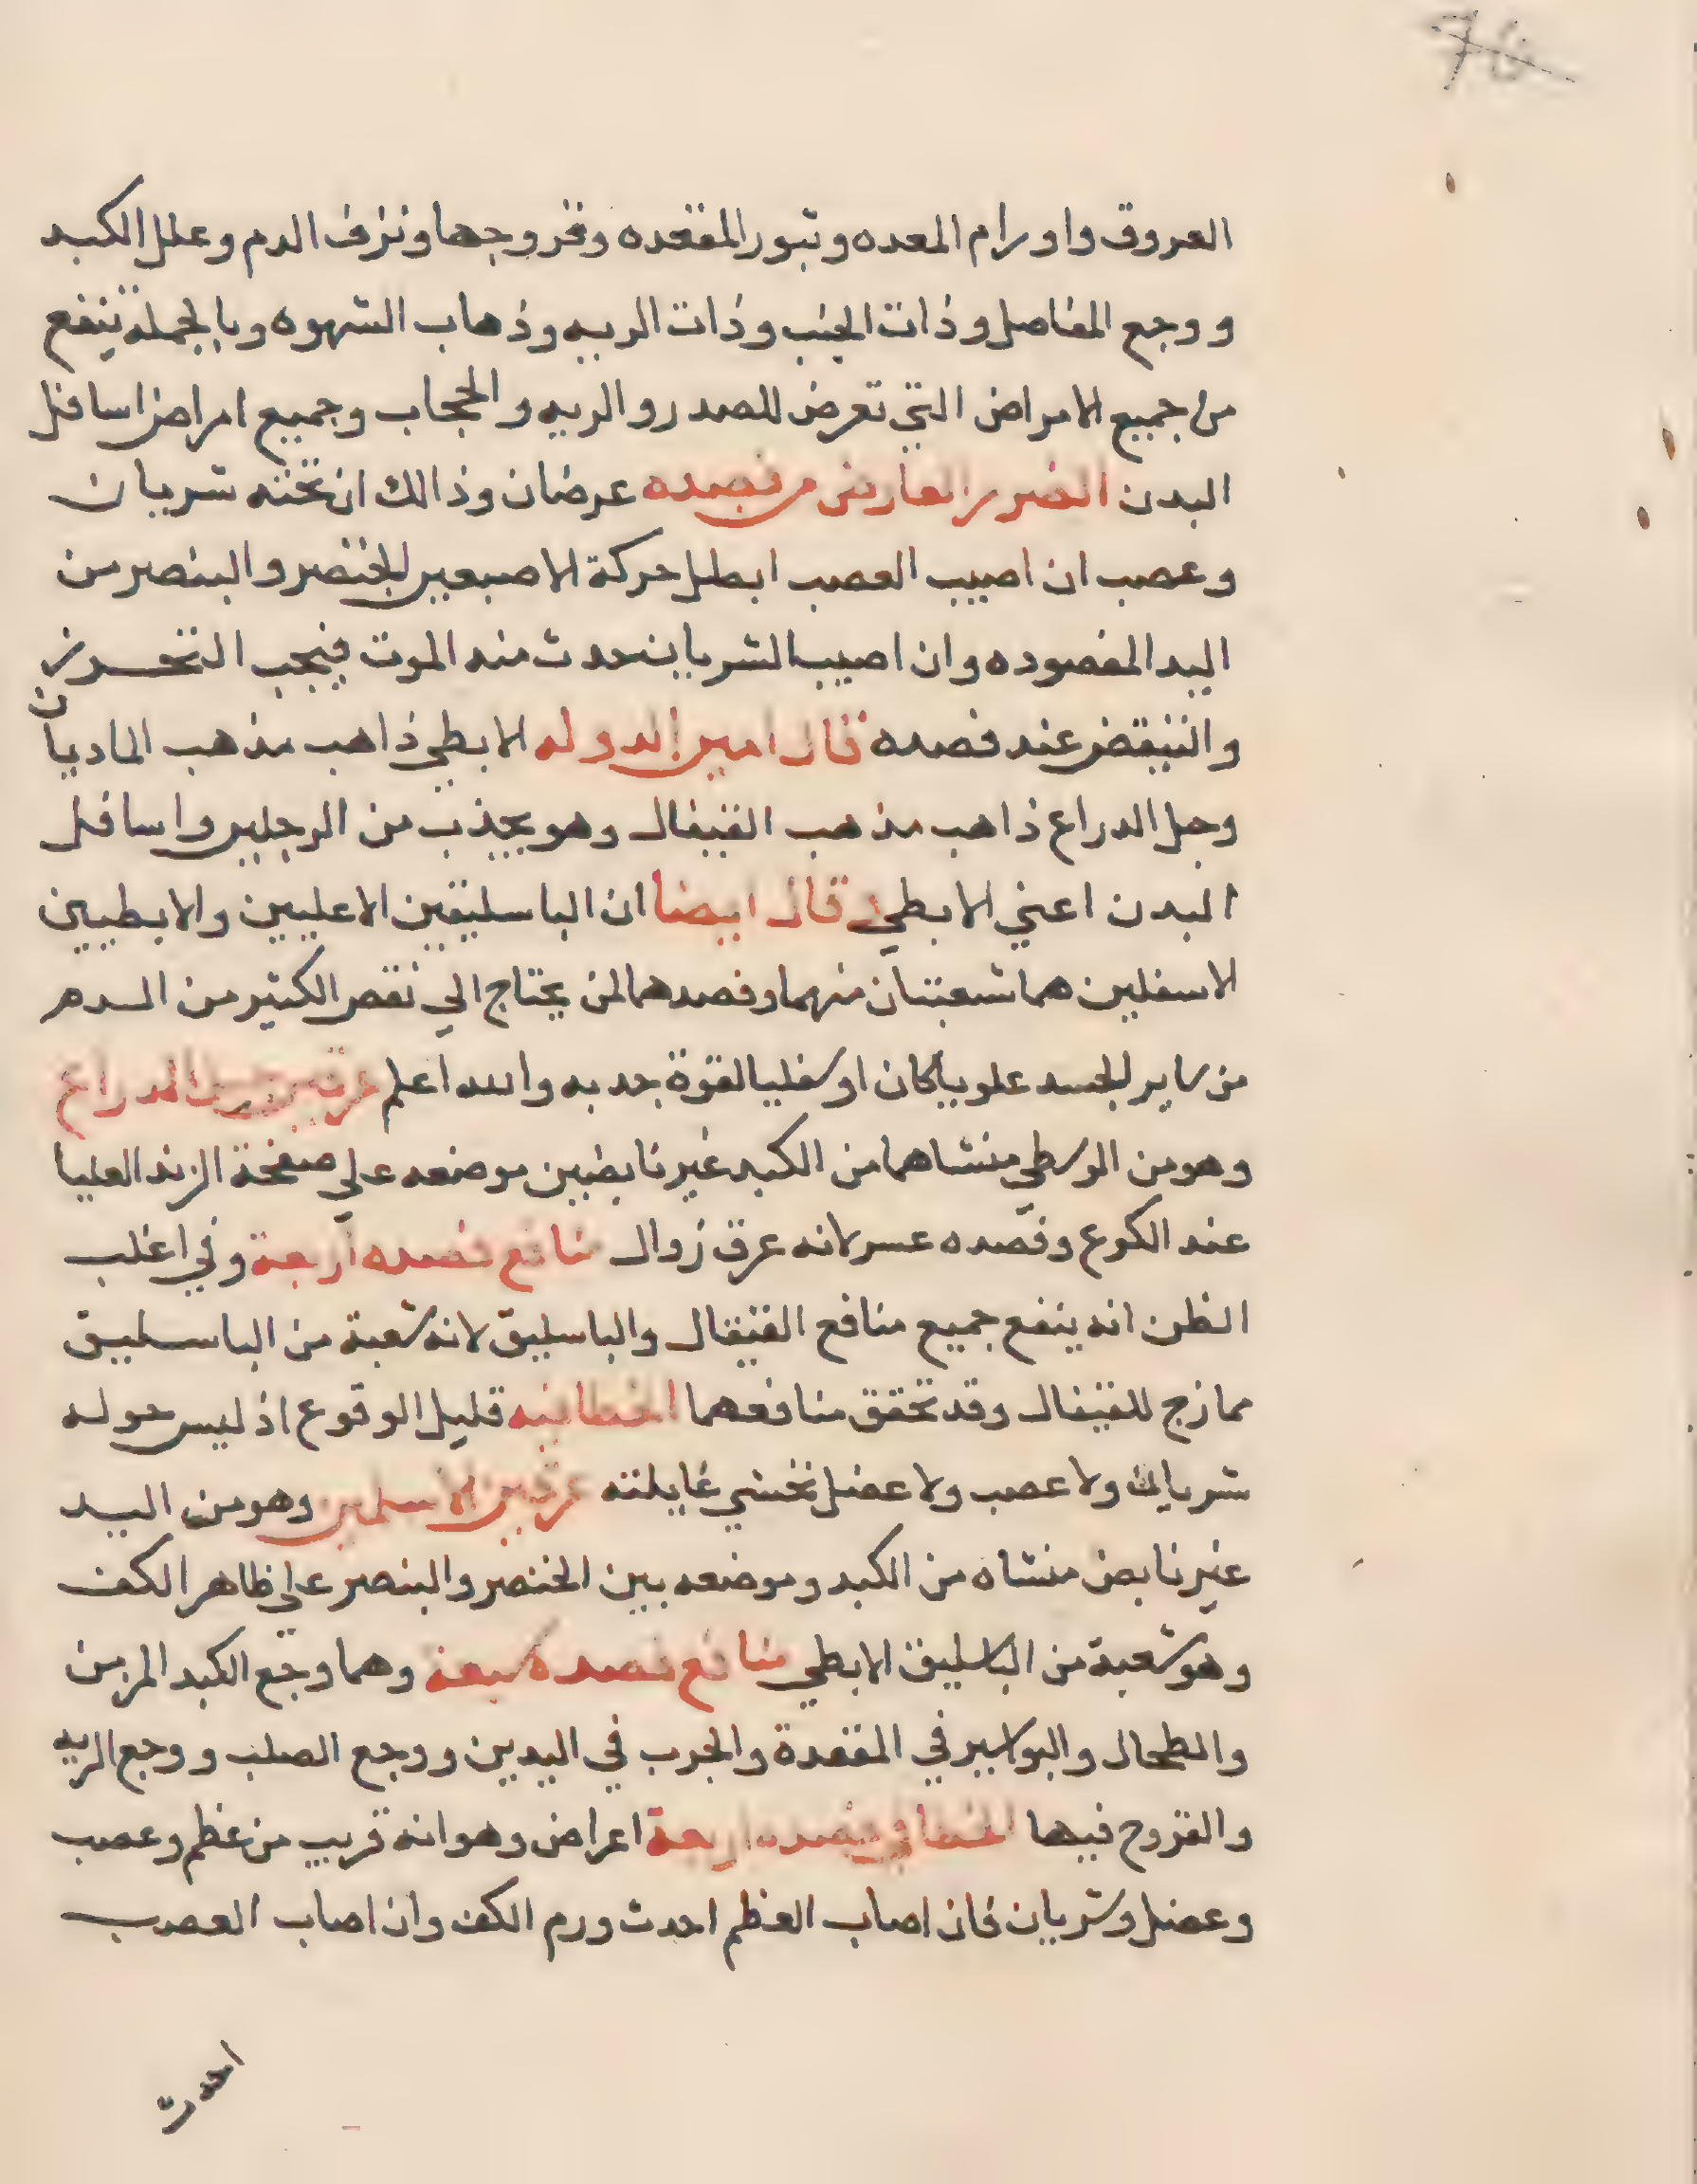 العروق واورام المعده وثبور المقعده وخروجها ونزف الدم وعلل الكبد
ووجع المفاصل وذات الجنب وذات الريه وذهاب الشهوه وبالجملة ينفع
من جميع الامراض التي تعرض للصدر والريه والحجاب وجميع امراض اسافل
البدن الضرر العارض من فصده عرضان وذالك ان تحته شريان
وعصب ان اصيب العصب ابطل حركة الاصبعين الخنصر والبنصر من
اليد المفصوده وان اصيب الشريان حدث منه الموت فيجب التحرز
والتيقض عند فصده قال امين الدوله الابطي ذاهب مذهب الماديان
وحبل الدراع ذاهب مذهب القيفال وهو يجذب من الرجلين واسافل
البدن اعني الابطي وقال ايضا ان الباسليقين الاعليين والابطيين
الاسفلين هما شعبتان منهما وفصدهما لمن يحتاج الي نقص الكثير من الدم
من ساير الجسد علويا كان او سفليا لقوة جدبه والله اعلم عرقين حبل الدراع
وهو من الوسطي منشاهما من الكبد غير نابضين موضعه علي صفحة الزند العليا
عند الكوع وفصده عسر لانه عرق زوال منافع فصده اربعة وفي اغلب
الظن انه ينفع جميع منافع القيفال والباسليق لانه شعبة من الباسليق
ممازج للقيفال وقد تحقق منافعهما الخطا فيه قليل الوقوع اذ ليس حوله
شريان ولا عصب ولا عضل نخشي غايلته عرقين الاسلمين وهو من اليد
غير نابض منشاه من الكبد وموضعه بين الخنصر والبنصر علي ظاهر الكف
وهو شعبة من الباسليق الابطي منافع فصده سبعة وهما وجع الكبد المزمن
والطحال والبواسير في المقعدة والجرب في اليدين ووجع الصلب ووجع الريه
والقروح فيها الخطا في فصده اربعة اعراض وهو انه قريب من عظم وعصب
وعضل وشريان فان اصاب العظم احدث ورم الكف وان اصاب العصب
احدث